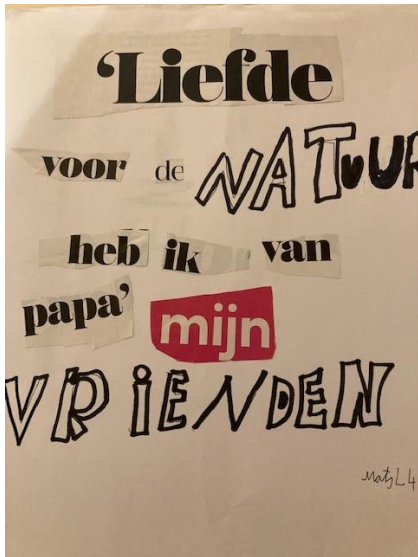 ‘Liefde
voor de NATUUR
heb ik van
papa’ mijn
VRiENDEN
Mats L4